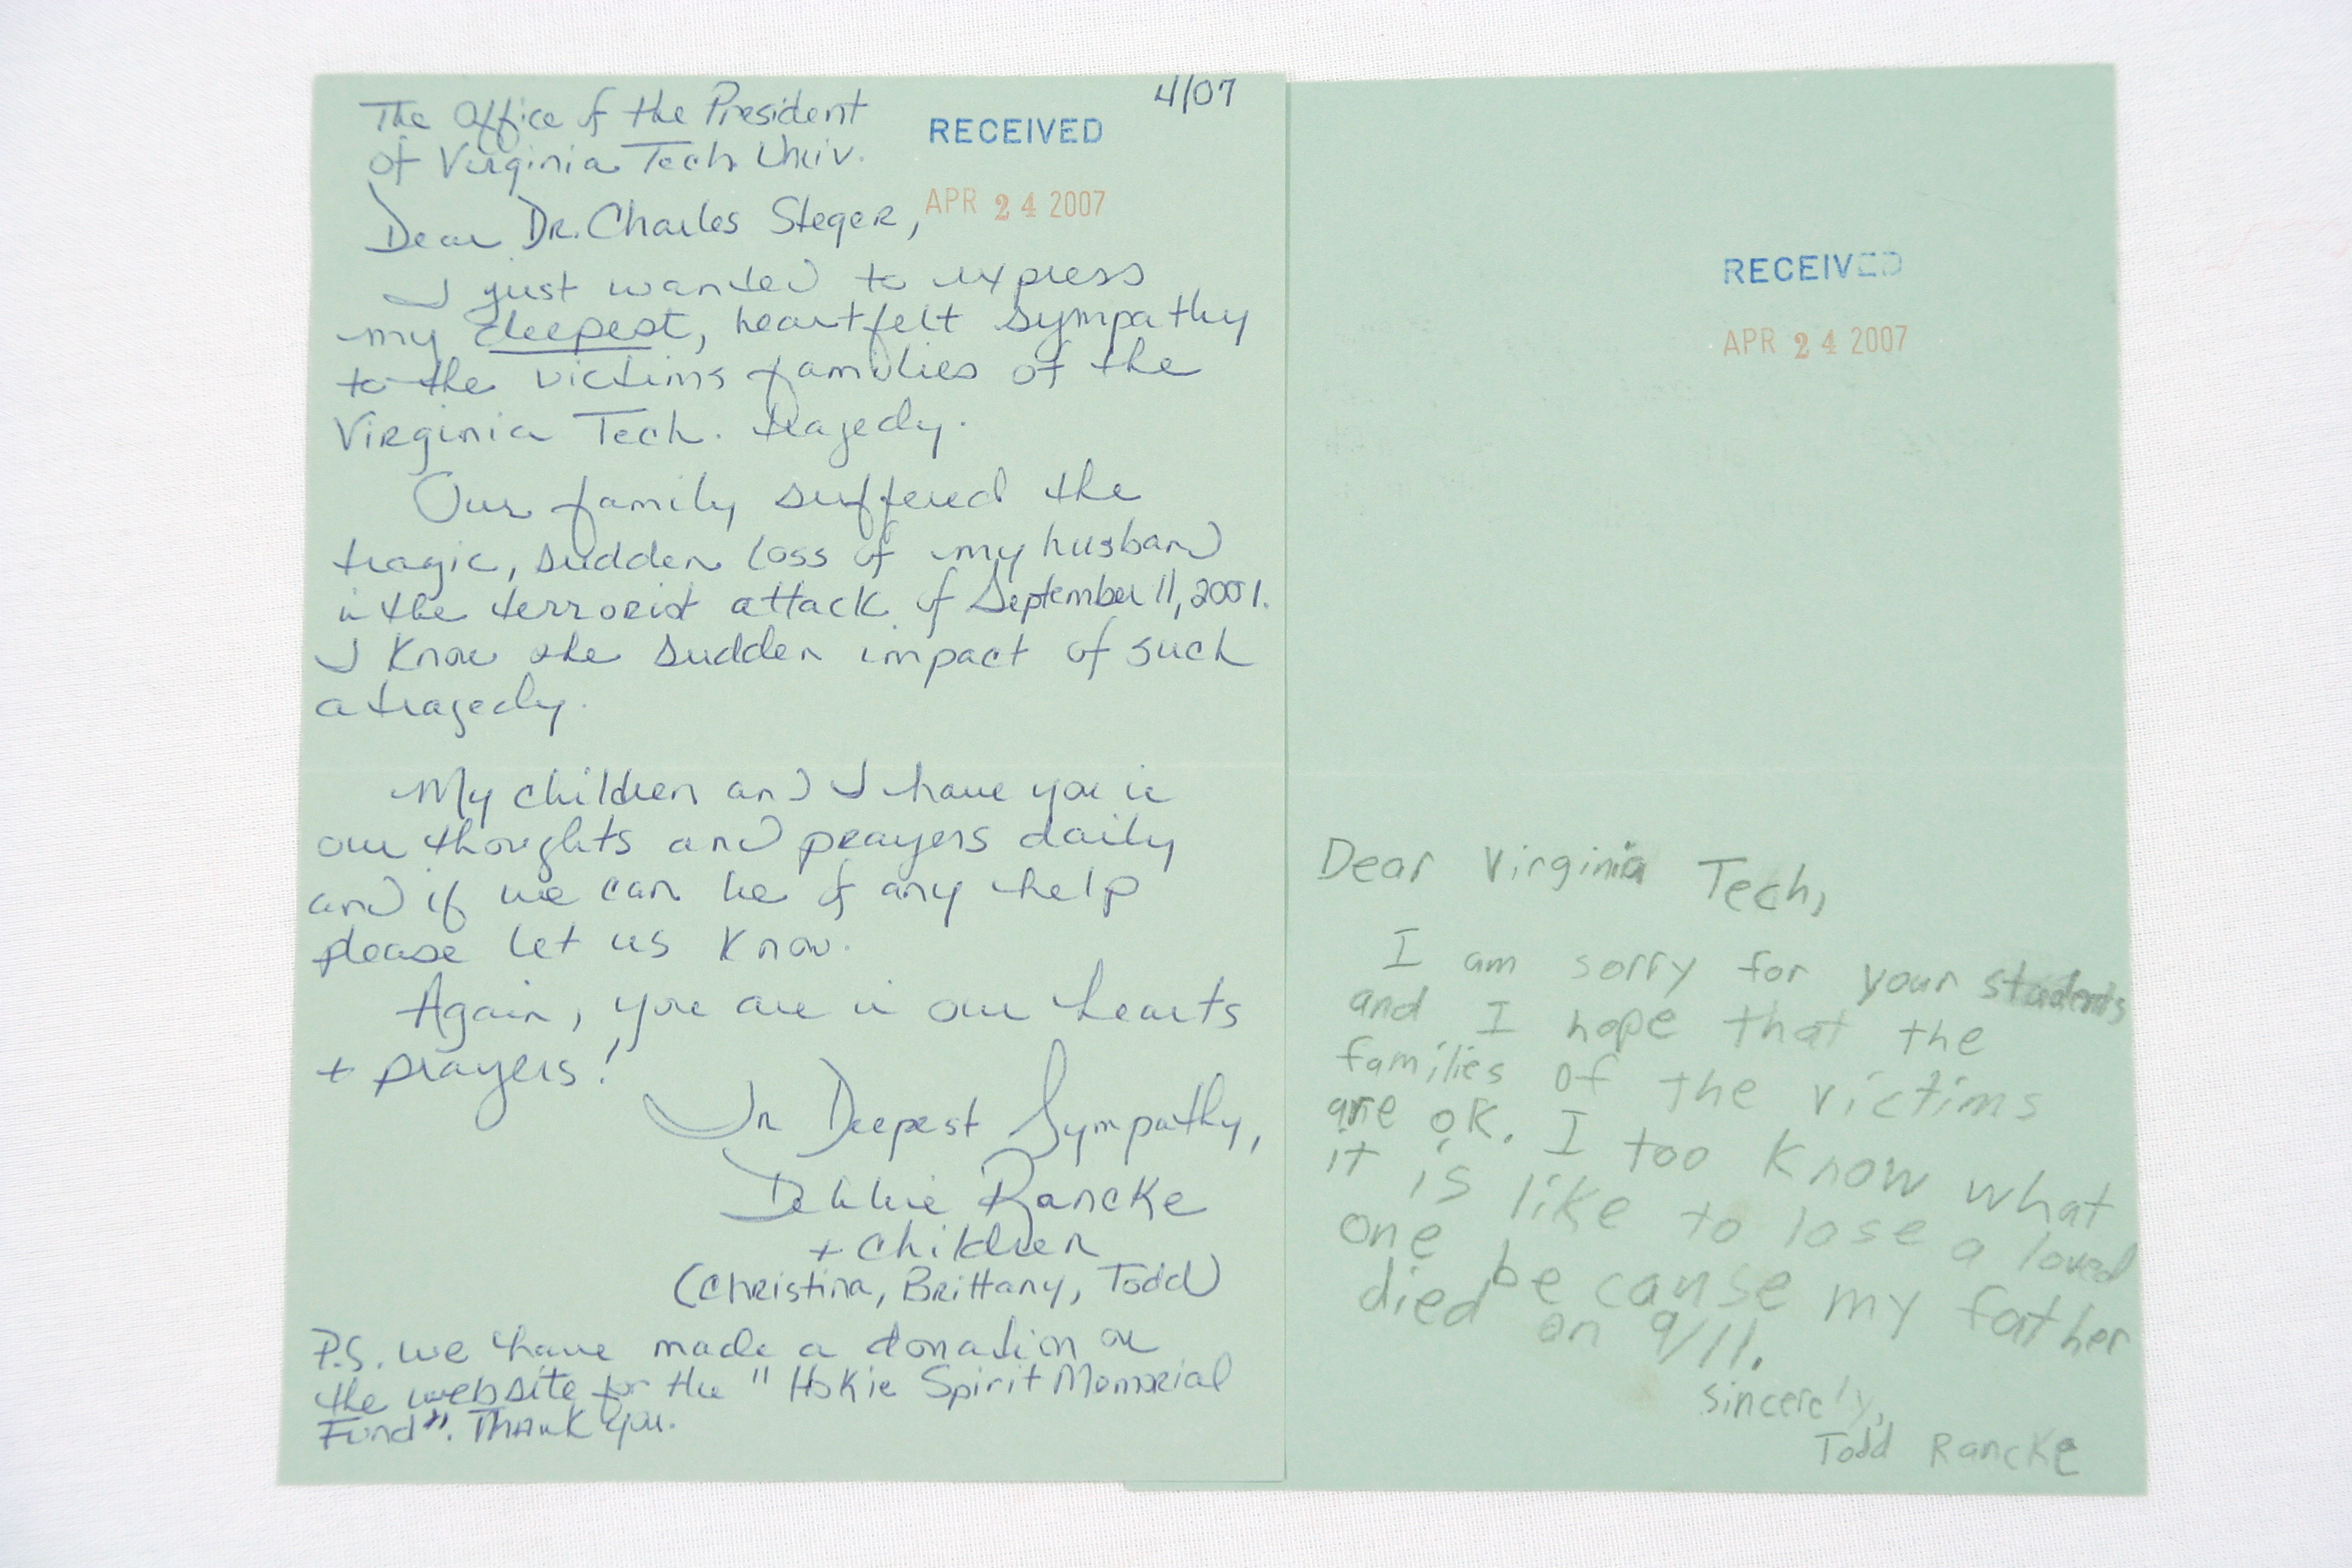 4/07
The Office of the President
of Virginia Tech Univ.
RECEIVED
APR 24 2007
Dear Dr. Charles Steger,
I just wanted to express
my deepest, heartfelt sympathy
to the victims families of the
Virginia Tech. tragedy.
Our family suffered the
tragic, sudden loss of my husband
in the terrorist attack of September 11, 2001.
I know the sudden impact of such
a tragedy.
My children and I have you in
our thoughts and prayers daily
and if we can be of any help
please let us know.
Again, you are in our hearts
+ prayers!
In Deepest Sympathy,
Debbie Rancke
+ children
(Christina, Brittany, Todd)
P.S. we have made a donation on
the website for the "Hokie Spirit Memorial
Fund". Thank you.
RECEIVED
APR 24 2007
Dear Virginia Tech,
I am sorry for your students
and I hope that the
families of the victims
are ok. I too know what
it is like to lose a loved
one because my father
died on 9/11.
sincerely,
Todd Rancke